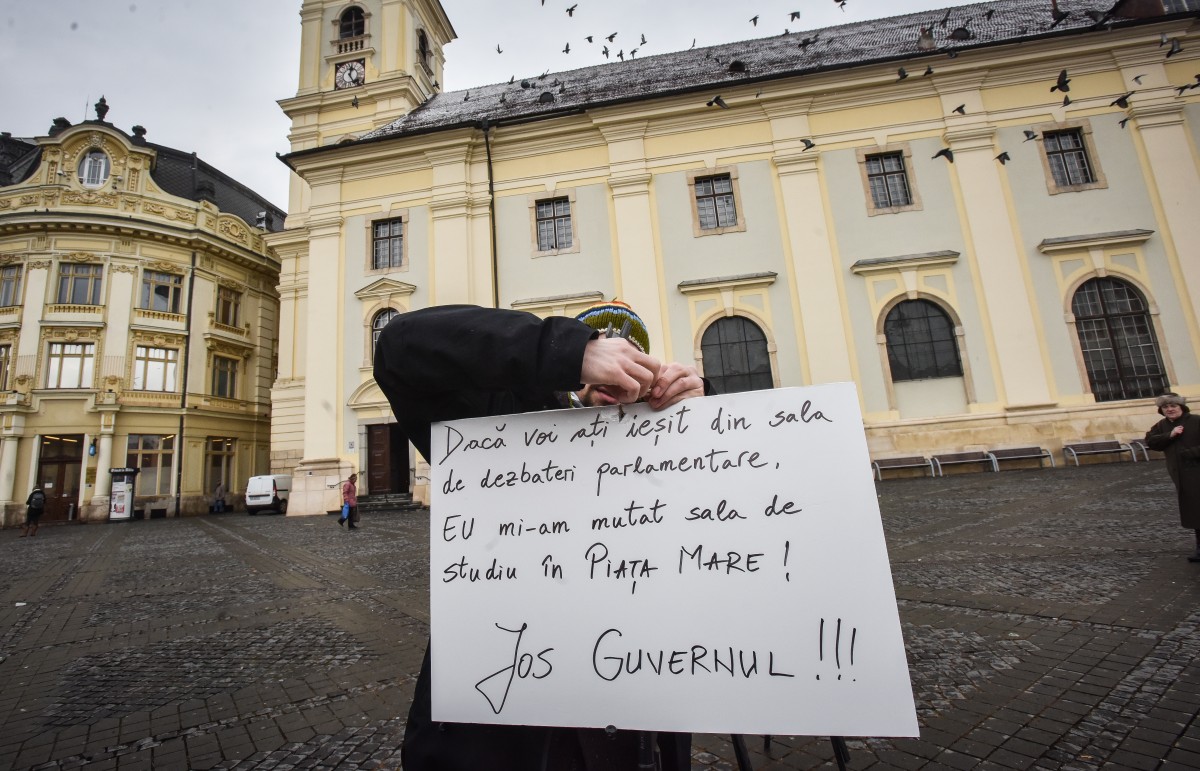 Dacă voi ați ieșit din sala
de dezbateri parlamentare,
EU mi-am mutat sala de
studiu în PIAȚA MARE!
JOS GUVERNUL!!!